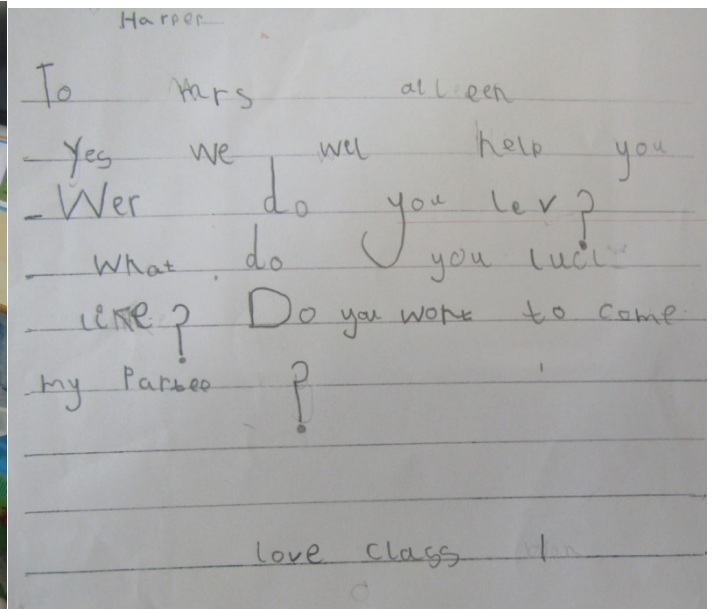 Harper
To Mrs alleen
Yes we wel help you
Wer do you lev?
What do you luci
like? Do you wont to come
my Partee ?
love class 1